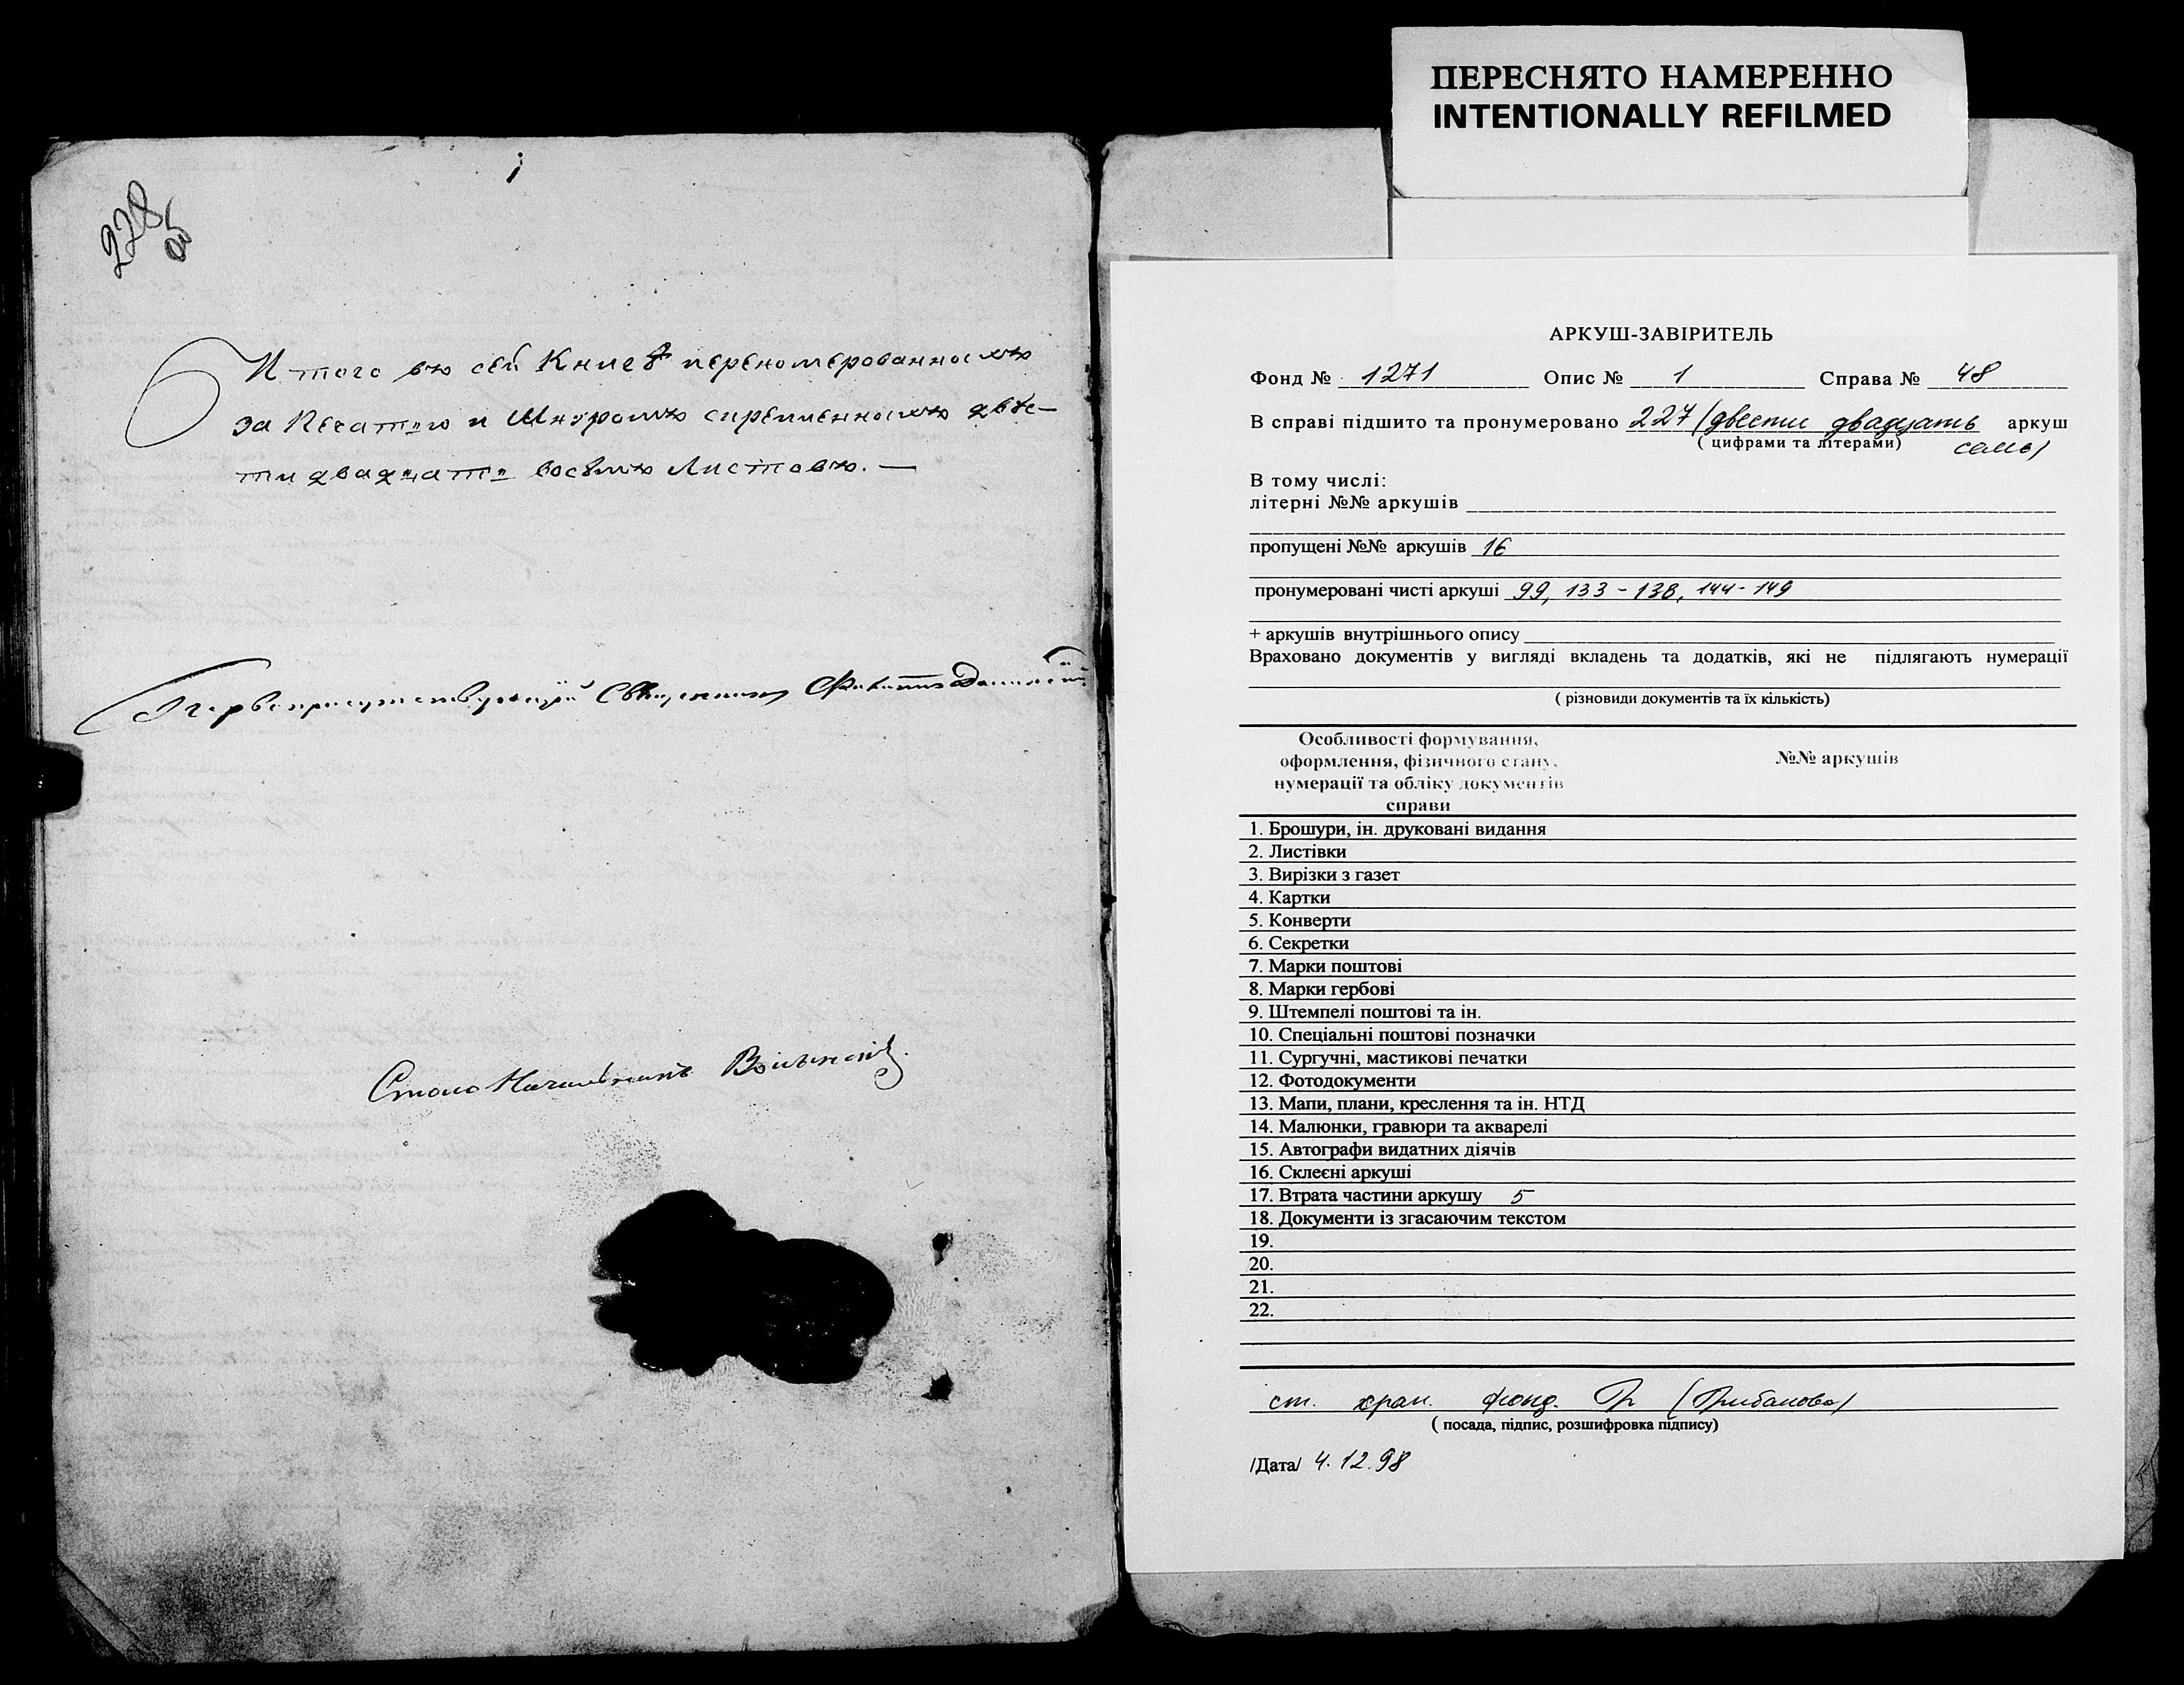 228
об
Итого въ сей Книгѣ перенумерованныхъ
за Печатью и Шнуромъ скрепленныхъ двѣс-
ти двадцать восемь Листовъ. —
Первоприсутствующій Священникъ
Столоначальникъ
ПЕРЕСНЯТО НАМЕРЕННО
INTENTIONALLY REFILMED
АРКУШ-ЗАВІРИТЕЛЬ
Фонд № 1271 Опис № 1 Справа № 48
В справі підшито та пронумеровано 227 (двести двадцать аркуш
( цифрами та літерами) семь)
В тому числі:
літерні №№ аркушів
пропущені №№ аркушів 16
пронумеровані чисті аркуші 99, 133 - 138, 144 - 149
+ аркушів внутрішнього опису
Враховано документів у вигляді вкладень та додатків, які не підлягають нумерації
( різновиди документів та їх кількість)
Особливості формування,
оформлення, фізичного стану,
нумерації та обліку документів
справи
№№ аркушів
1. Брошури, ін. друковані видання
2. Листівки
3. Вирізки з газет
4. Картки
5. Конверти
6. Секретки
7. Марки поштові
8. Марки гербові
9. Штемпелі поштові та ін.
10. Спеціальні поштові позначки
11. Сургучні, мастикові печатки
12. Фотодокументи
13. Мапи, плани, креслення та ін. НТД
14. Малюнки, гравюри та акварелі
15. Автографи видатних діячів
16. Склеєні аркуші
17. Втрата частини аркушу 5
18. Документи із згасаючим текстом
19.
20.
21.
22.
ст. хран. фонд.
( посада, підпис, розшифровка підпису)
/Дата/ 4.12.98